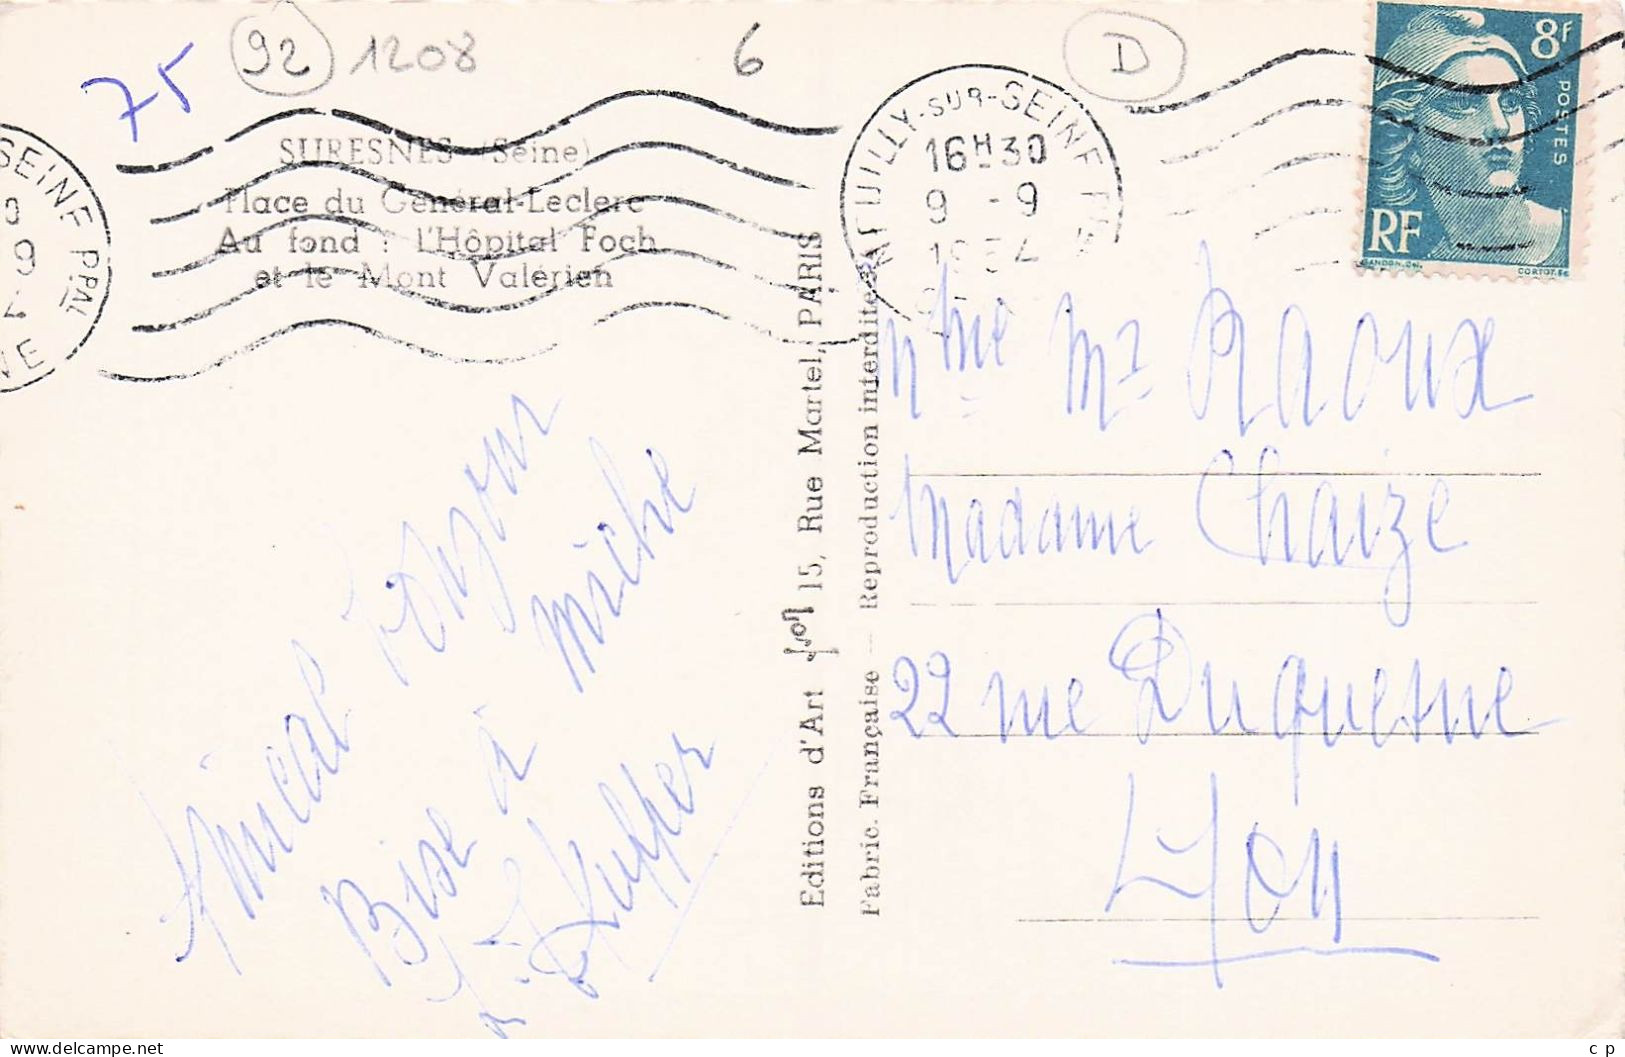 75
92
1208
6
D
SURESNES (Seine)
Place du Général-Leclerc
Au fond : l'Hôpital Foch
et le Mont Valérien
SEINE PPAL
NEUILLY-SUR-SEINE PPAL
16H30
9 -9
1954
8F
POSTES
RF
GANDON.DEL.
CORTOT.SC
Amical bonjour
Bise à Miche
Kuffer
Editions d'Art Yvon 15, Rue Martel, PARIS
Fabric. Française — Reproduction interdite
Mme Mr Raoux
Madame Chaize
22 rue Duquesne
Lyon
www.delcampe.net
c p